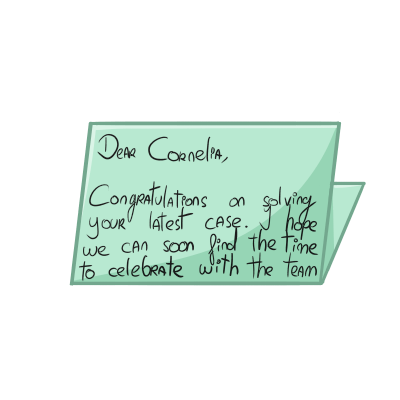 Dear Cornelia,
Congratulations on solving
your latest case. I hope
we can soon find the time
to celebrate with the team